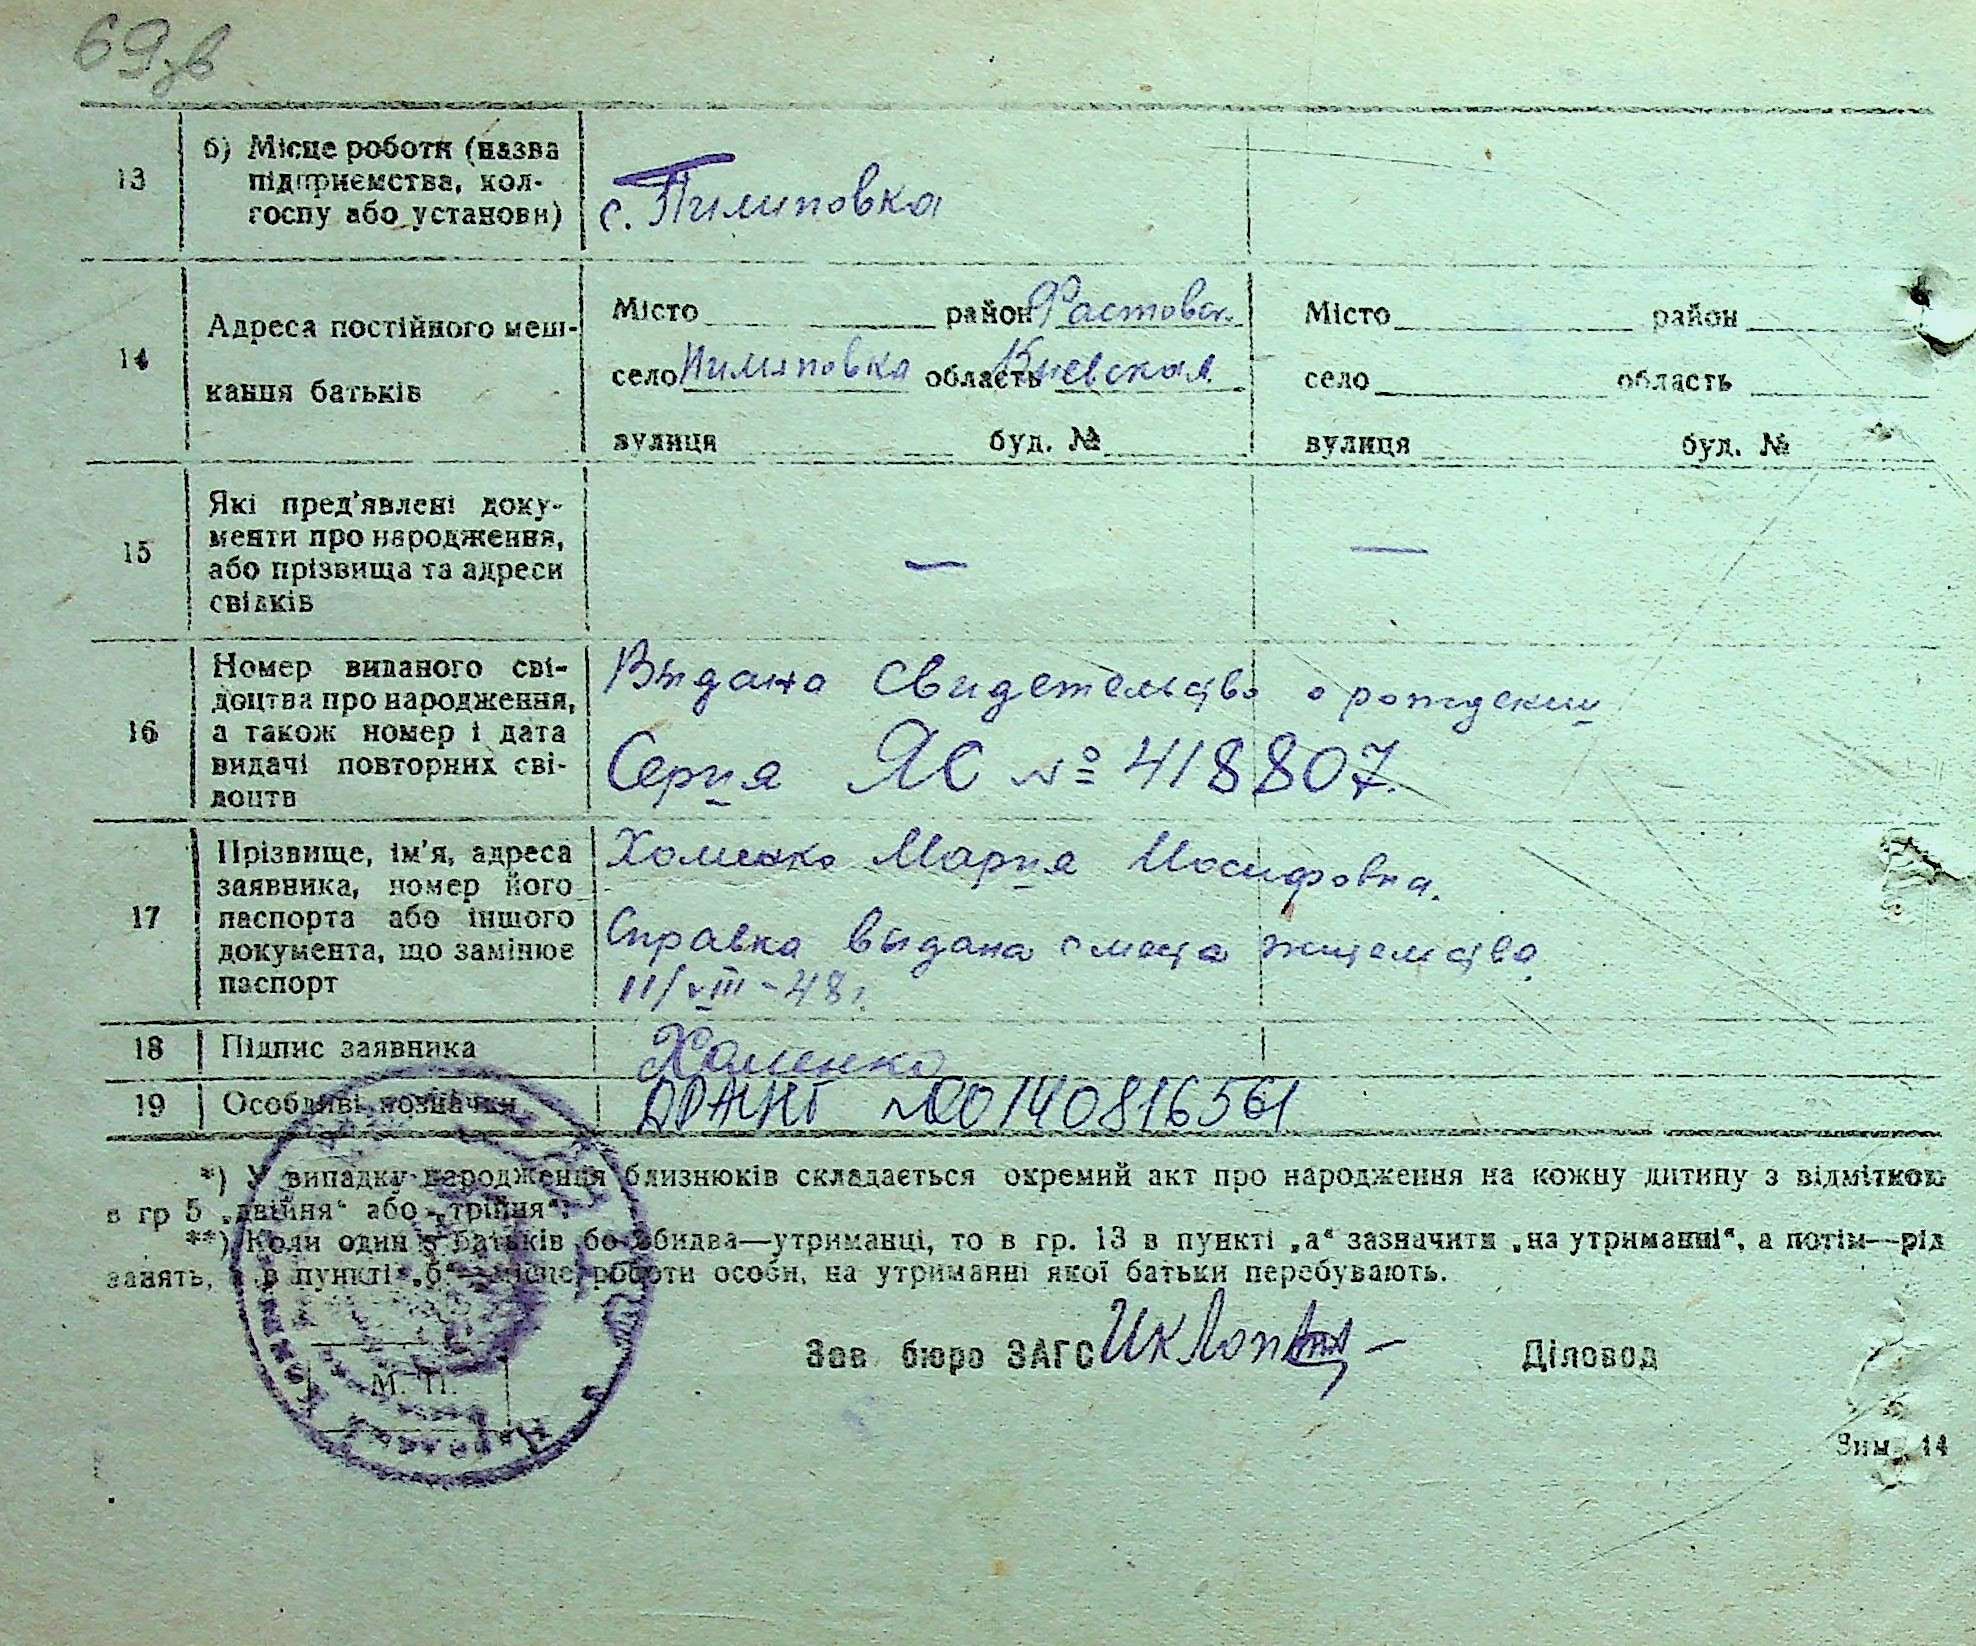 69зв
13 б) Місце роботи (назва
підприємства, кол-
госпу або установи)
с. Пилиповка
14 Адреса постійного меш-
кання батьків
Місто район Фастовск.
село Пилиповка область Киевская
вулиця буд. №
Місто район
село область
вулиця буд. №
15 Які пред'явлені доку-
менти про народження,
або прізвища та адреси
свідків
— —
16 Номер виданого сві-
доцтва про народження,
а також номер і дата
видачі повторних сві-
доцтв
Выдано свидетельство о рождении
Серия ЯС № 418807.
17 Прізвище, ім'я, адреса
заявника, номер його
паспорта або іншого
документа, що замінює
паспорт
Хоменко Мария Иосифовна.
Справка выдана с места жительства
11/VIII-48г.
18 Підпис заявника
Хоменко
19 Особливі позначки
ДРАЦСГ №00140816561
*) У випадку народження близнюків складається окремий акт про народження на кожну дитину з відміткою
в гр 5 „двійня“ або „трійня“.
**) Коли один з батьків бо обидва—утриманці, то в гр. 13 в пункті „а“ зазначити „на утриманні“, а потім—рід
занять, а в пункті „б“—місце роботи особи, на утриманні якої батьки перебувають.
Зав бюро ЗАГС
Діловод
М. П.
Зим. 14